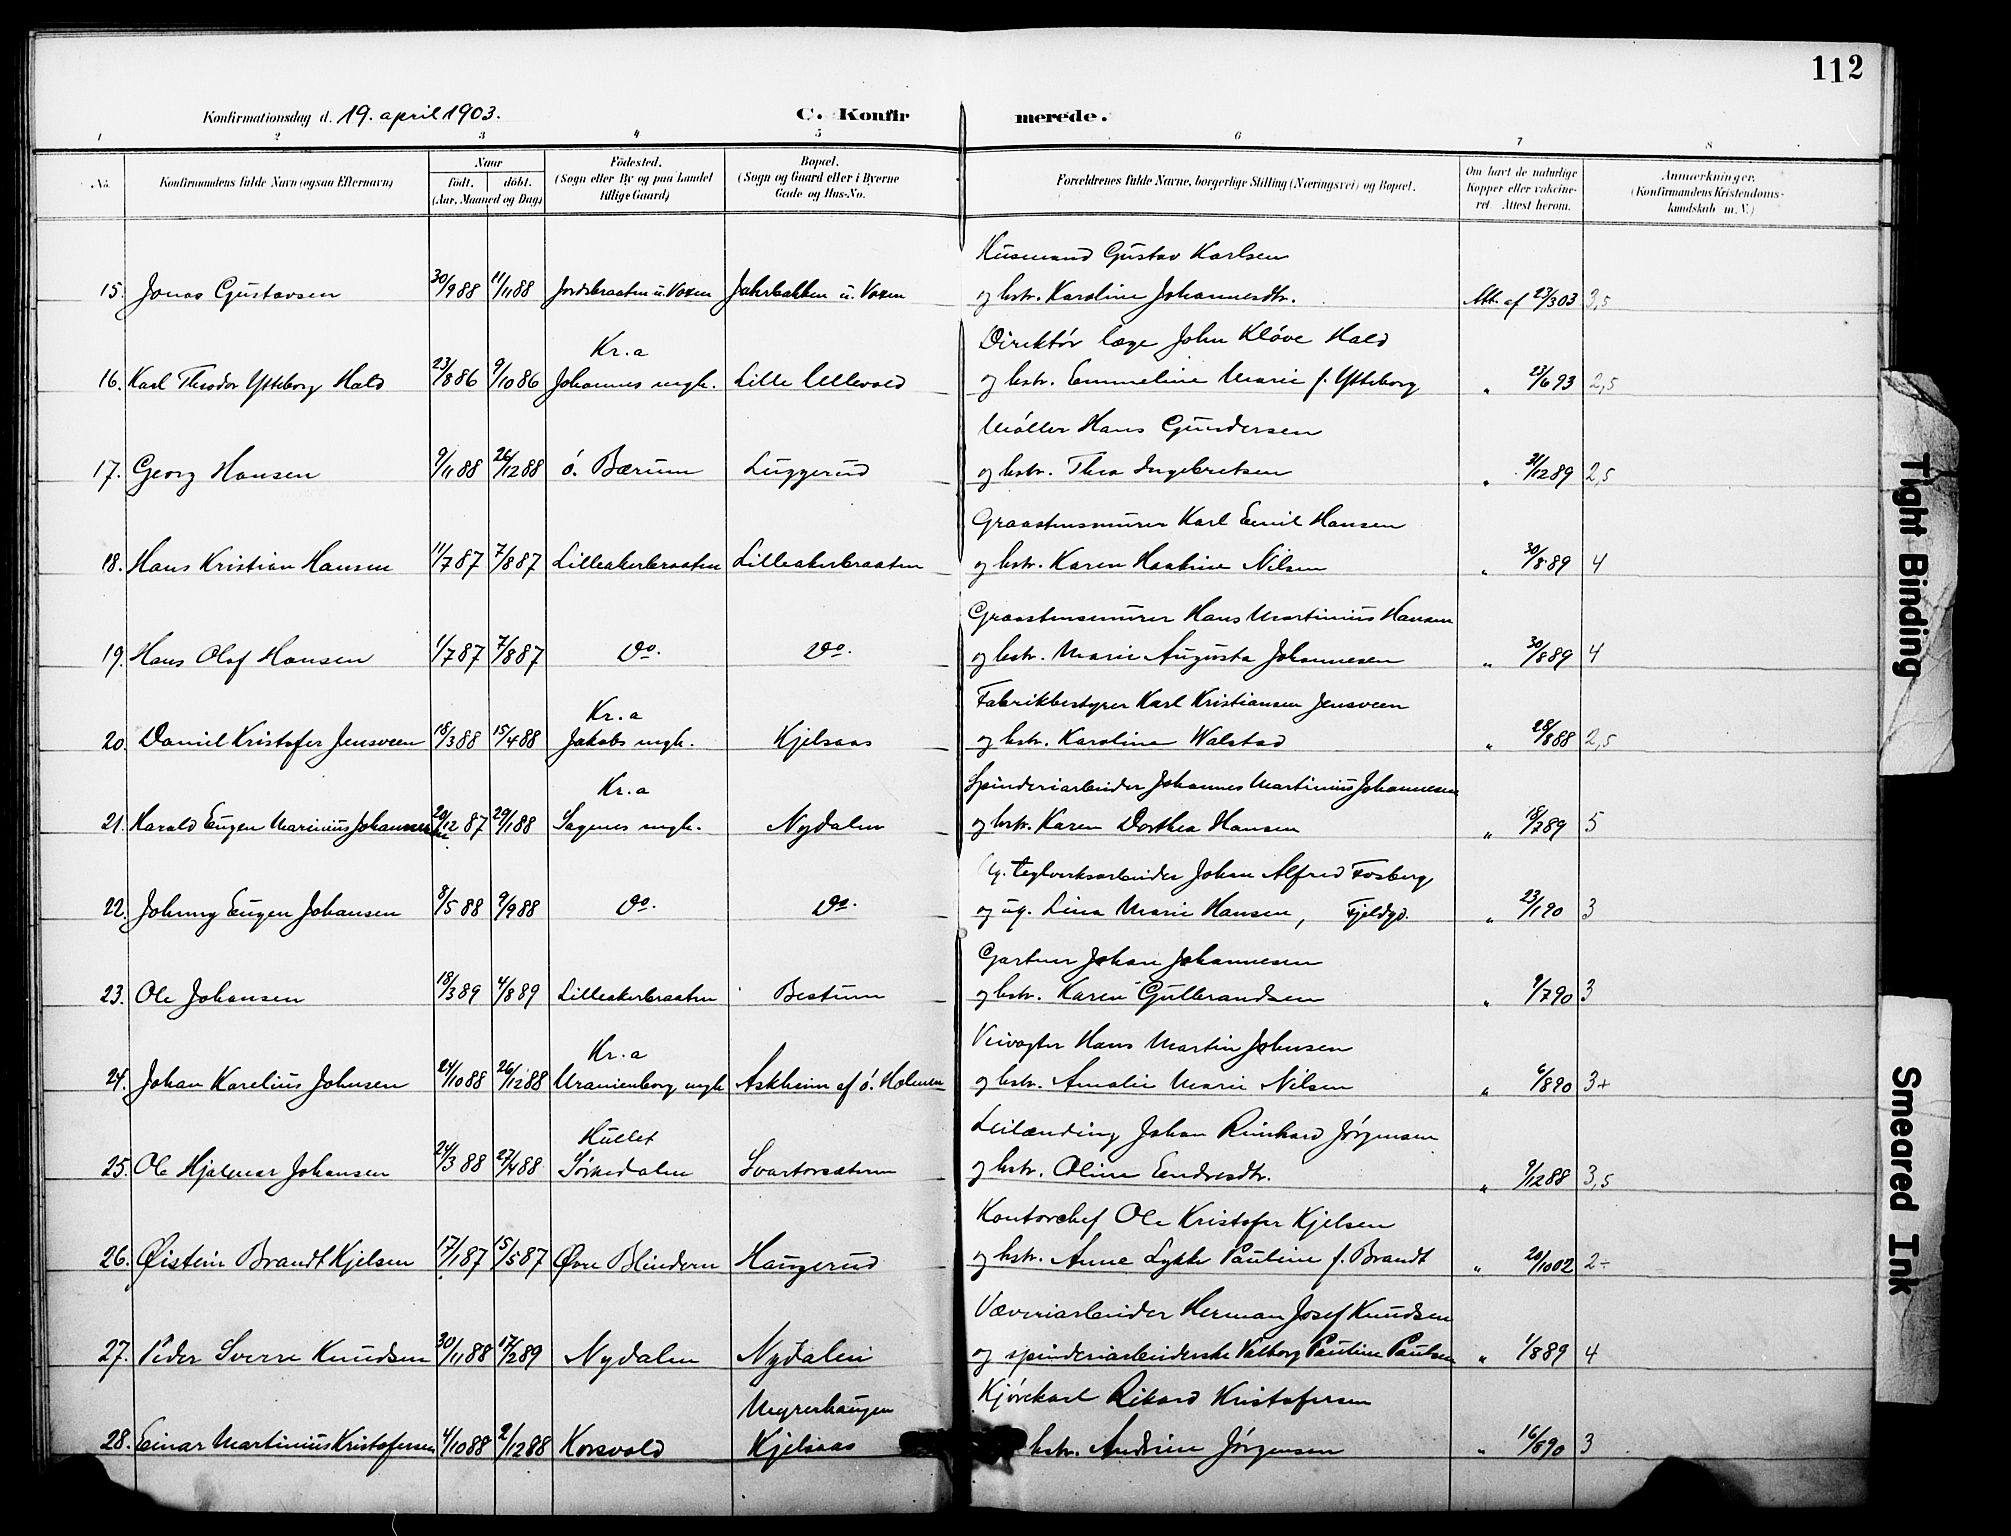 112
Konfirmationsdag d. 19. april 1903. C. Konfir merede.
1 2 3 4 5 6 7 8
No. Konfirmandens fulde Navn (ogsaa Efternavn) Naar født. døbt. (Aar, Maaned og Dag) Fødested. (Sogn eller By og paa Landet tillige Gaard) Bopæl. (Sogn og Gaard eller i Byerne Gade og Hus-No. Forældrenes fulde Navne, borgerlige Stilling (Næringsvei) og Bopæl. Om havt de naturlige Kopper eller vakcineret. Attest herom. Anmærkninger. (Konfirmandens Kristendomskundskab m. V.)
Husmand Gustav Karlsen
15. Jonas Gustavsen 30/9 88 11/11 88 Jordsbraaten u. Voxen Jahrbakken u. Voxen og hstr. Karoline Johannesdtr. Att. af 23/3 03 3,5
Kr.a Direktør læge John Kløve Hald
16. Karl Theodor Ytteborg Hald 23/8 86 9/10 86 Johannes mgh. Lille Ullevold og hstr. Emmeline Marie f. Ytteborg " 23/6 93 2,5
Møller Hans Gundersen
17. Georg Hansen 9/11 88 26/12 88 ø. Bærum Luggerud og hstr. Thea Ingebretsen " 31/12 89 2,5
Graastensmurer Karl Emil Hansen
18. Hans Kristian Hansen 11/7 87 7/8 87 Lilleakerbraaten Lilleakerbraaten og hstr. Karen Haakine Nilsen " 30/8 89 4
Graastensmurer Hans Martinius Hansen
19. Hans Olaf Hansen 1/7 87 7/8 87 Do. Do. og hstr. Marie Augusta Johannesen " 30/8 89 4
Kr.a Fabrikbestyrer Karl Kristiansen Jensveen
20. Daniel Kristofer Jensveen 18/3 88 15/4 88 Jakobs mgh. Kjelsaas og hstr. Karoline Walstad " 28/8 88 2,5
Kr.a Spinderiarbeider Johannes Martinius Johannesen
21. Harald Eugen Marinius Johannesen 20/12 87 29/1 88 Sagenes mgh. Nydalen og hstr. Karen Dorthea Hansen " 18/2 89 5
Ug. teglverksarbeider Johan Alfred Fosberg
22. Johnny Eugen Johansen 8/5 88 9/9 88 Do. Do. og ug. Lina Marie Hansen, Fjeldgd. " 23/1 90 3
Gartner Johan Johannesen
23. Ole Johansen 18/3 89 4/8 89 Lilleakerbraaten Bestum og hstr. Karen Gulbrandsen " 9/7 90 3
Kr.a Veivogter Hans Martin Johnsen
24. Johan Karelius Johnsen 24/10 88 26/12 88 Uranienborg mgh Askheim af ø. Holmen og hstr. Amalie Marie Nilsen " 6/8 90 3+
Hullet Leilænding Johan Reinhard Jørgensen
25. Ole Hjalmar Johansen 24/3 88 27/4 88 Sørkedalen Svartorsæteren og hstr. Oline Endresdtr. " 9/12 88 3,5
Kontorchef Ole Kristofer Kjelsen
26. Øistein Brandt Kjelsen 17/1 87 15/5 87 Øvre Blindern Haugerud og hstr. Anne Lykke Pauline f. Brandt " 20/10 02 2÷
Væveriarbeider Herman Josef Knudsen
27. Peder Sverre Knudsen 30/11 88 17/2 89 Nydalen Nydalen og spinderiarbeiderske Valborg Pauline Paulsen " 1/8 89 4
Myrerhaugen Kjørekarl Rikard Kristofersen
28. Einar Martinius Kristofersen 4/10 88 2/12 88 Korsvold Kjelsaas hstr. Andrine Jørgensen " 16/8 90 3
Tight Binding
Smeared Ink